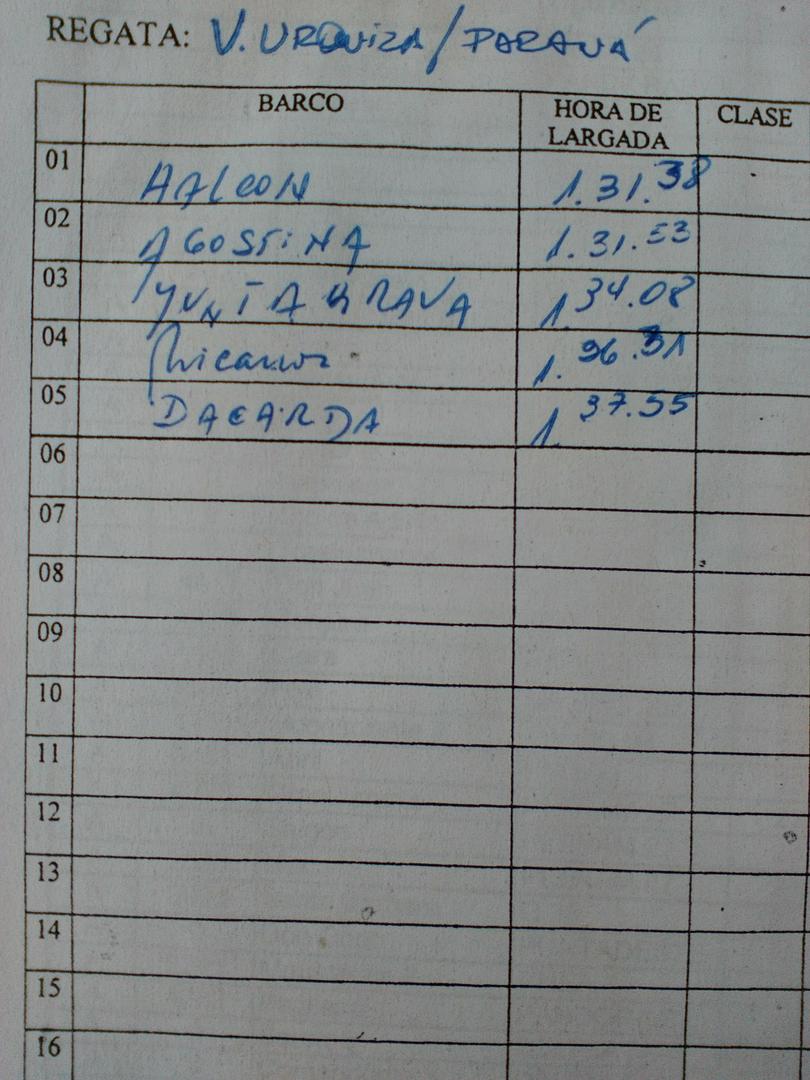 REGATA: V. URQUIZA / PARANÁ
BARCO HORA DE LARGADA CLASE
01 HALCON 1.31.38
02 AGOSTINA 1.31.53
03 YUNTA BRAVA 1.34.08
04 1.36.31
05 DACARDA 1.37.55
06
07
08
09
10
11
12
13
14
15
16